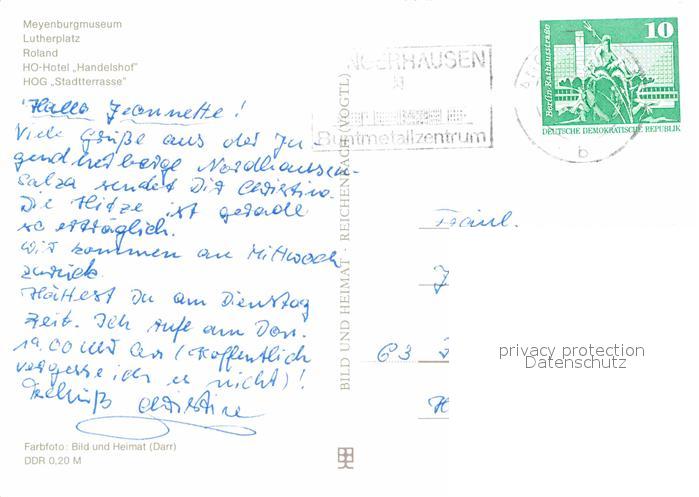 Meyenburgmuseum
Lutherplatz
Roland
HO-Hotel „Handelshof"
HOG „Stadtterrasse"
Hallo Jeannette!
Viele Grüße aus der Ju-
gendherberge Nordhausen-
salza sendet Dir Christine.
Die Hitze ist gerade
so erträglich.
Wir kommen am Mittwoch
zurück.
Hättest Du am Dienstag
Zeit. Ich rufe am Don.
19.00 Uhr an (Hoffentlich
vergesse ich es nicht)!
Tschüß Christine
Farbfoto: Bild und Heimat (Darr)
DDR 0,20 M
BILD UND HEIMAT · REICHENBACH (VOGTL)
NGERHAUSEN
Buntmetallzentrum
b
10
Berlin-Rathausstraße
DEUTSCHE DEMOKRATISCHE REPUBLIK
Fräul.
J
63
privacy protection
Datenschutz